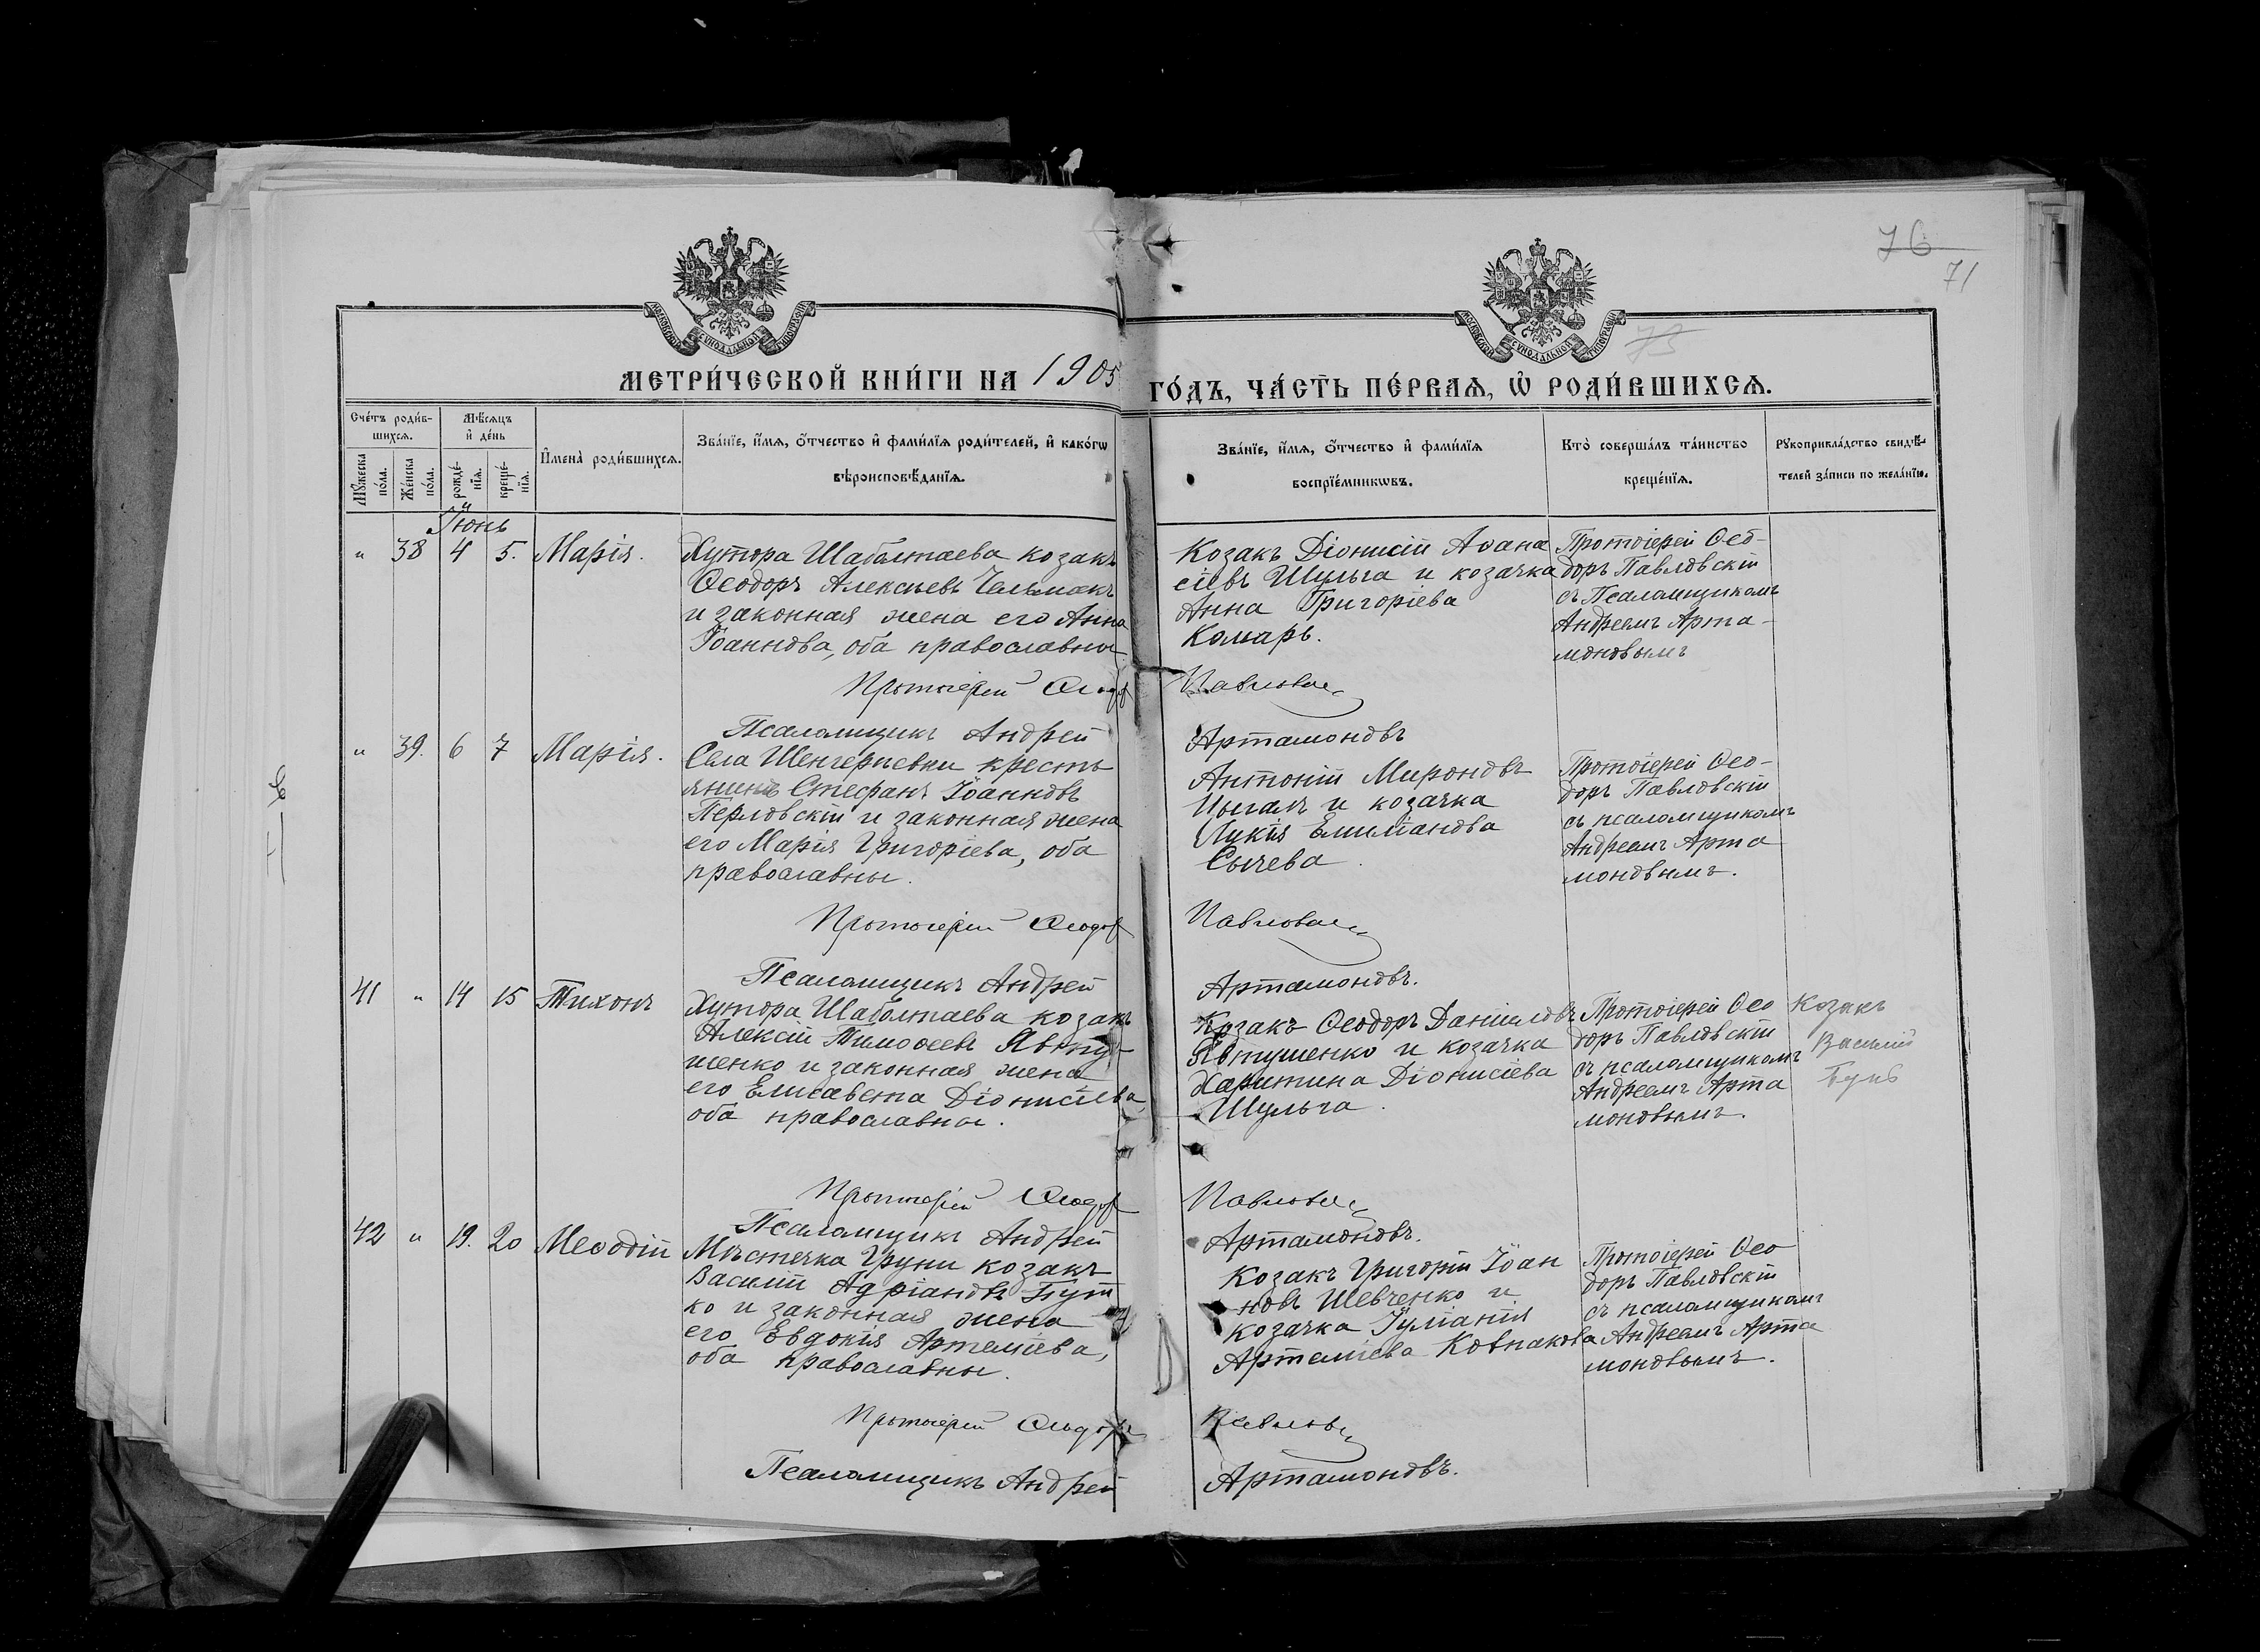 76
71
73
МОСКОВСКОЙ СѴНОДАЛЬНОЙ ТИПОГРАФІИ
МОСКОВСКОЙ СѴНОДАЛЬНОЙ ТИПОГРАФІИ
МЕТРИ́ЧЕСКОЙ КНИ́ГИ НА 1905 ГО́ДЪ, ЧА́СТЬ ПЕ́РВАѦ, Ѡ҆ РОДИ́ВШИХСѦ.
Сче́тъ роди́в-
шихсѧ.
Мѣ́сѧцъ
и҆ де́нь
Мꙋ́жеска
по́ла.
Же́нска
по́ла.
рожде́-
нїѧ.
креще́-
нїѧ.
И҆мена̀ роди́вшихсѧ.
Зва́нїе, и҆́мѧ, о҆́тчество и҆ фами́лїѧ роди́телей, и҆ како́гѡ
вѣроисповѣ́данїѧ.
Зва́нїе, и҆́мѧ, о҆́тчество и҆ фами́лїѧ
воспрїе́мникѡвъ.
Кто̀ соверша́лъ та́инство
креще́нїѧ.
Рꙋкоприкла́дство свидѣ́-
телей за́писи по жела́нїю.
Іюнь
" 38 4 5. Марія.
Хутора Шаболтаева козакъ
Ѳеодоръ Алексіевъ Чельмакъ
и законная жена его Анна
Іоаннова, оба православны
Козакъ Діонисій Аѳана
сіевъ Шульга и козачка
Анна Григоріева
Комаръ.
Протоіерей Ѳео-
доръ Павловскій
съ Псаломщикомъ
Андреемъ Арта-
моновымъ
Протоіерей Ѳеодоръ Павловскій
Псаломщикъ Андрей Артамоновъ
" 39. 6 7 Марія.
Села Шенгеріевки кресть
янинъ Стефанъ Іоанновъ
Перловскій и законная жена
его Марія Григоріева, оба
православны.
Антоній Мироновъ
Цыганъ и козачка
Лукія Емиліанова
Сычева.
Протоіерей Ѳео-
доръ Павловскій
съ псаломщикомъ
Андреемъ Арта
моновымъ.
Протоіерей Ѳеодоръ Павловскій
Псаломщикъ Андрей Артамоновъ.
41 " 14 15 Тихонъ
Хутора Шаболтаева козакъ
Алексій Тимоѳеевъ Явту-
шенко и законная жена
его Елисавета Діонисіева,
оба православны.
Козакъ Ѳеодоръ Даніиловъ
Явтушенко и козачка
Харитина Діонисіева
Шульга.
Протоіерей Ѳео
доръ Павловскій
съ псаломщикомъ
Андреемъ Арта
моновымъ.
Козакъ
Василій
Протоіерей Ѳеодоръ Павловскій
Псаломщикъ Андрей Артамоновъ.
42 " 19. 20 Меѳодій
Мѣстечка Груни козакъ
Василій Адріановъ Бут
ко и законная жена
его Евдокія Артеміева,
оба православны.
Козакъ Григорій Іоан
новъ Шевченко и
козачка Іуліанія
Артеміева Ковпакова
Протоіерей Ѳео
доръ Павловскій
съ псаломщикомъ
Андреемъ Арта
моновымъ.
Протоіерей Ѳеодоръ Павловскій
Псаломщикъ Андрей Артамоновъ.